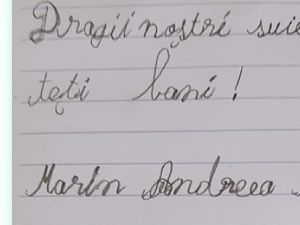 Dragii noștri
țęti bani!
Marin Andreea